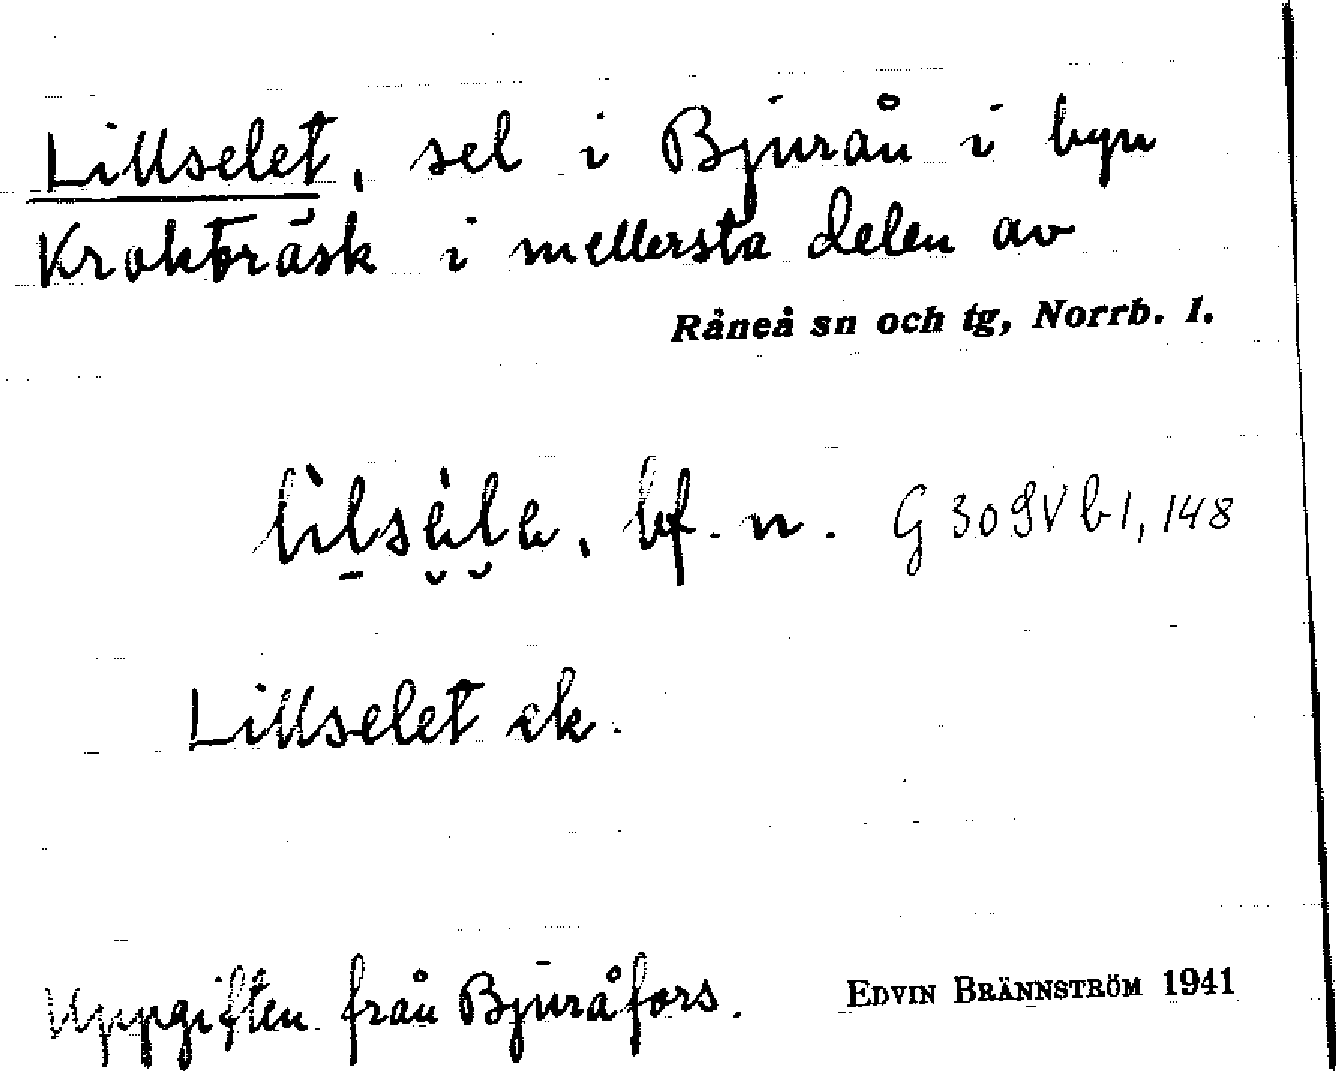 Lillselet, sel i Bjurån i byn
Krokträsk i mellersta delen av
Råneå sn och tg, Norrb. l.
bf. n. G 30 9V b 1, 148
Lillselet ek.
Uppgiften från Bjuråfors. EDVIN BRÄNNSTRÖM 1941